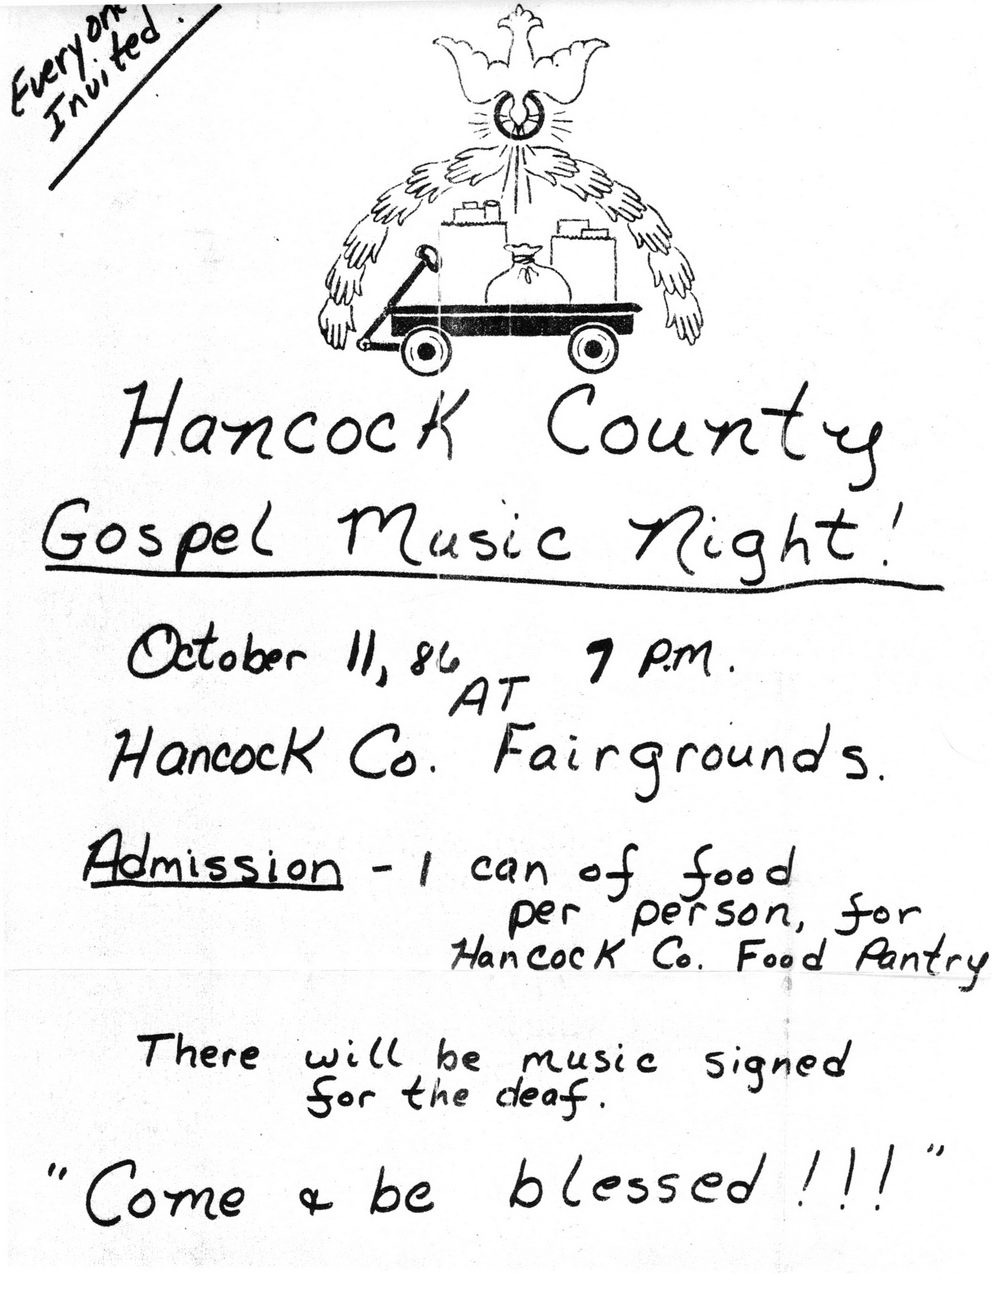 Everyone
Invited!
Hancock County
Gospel Music Night!
October 11, 86 7 P.M.
AT
Hancock Co. Fairgrounds.
Admission - 1 can of food
per person, for
Hancock Co. Food Pantry
There will be music signed
for the deaf.
"Come & be blessed!!!"